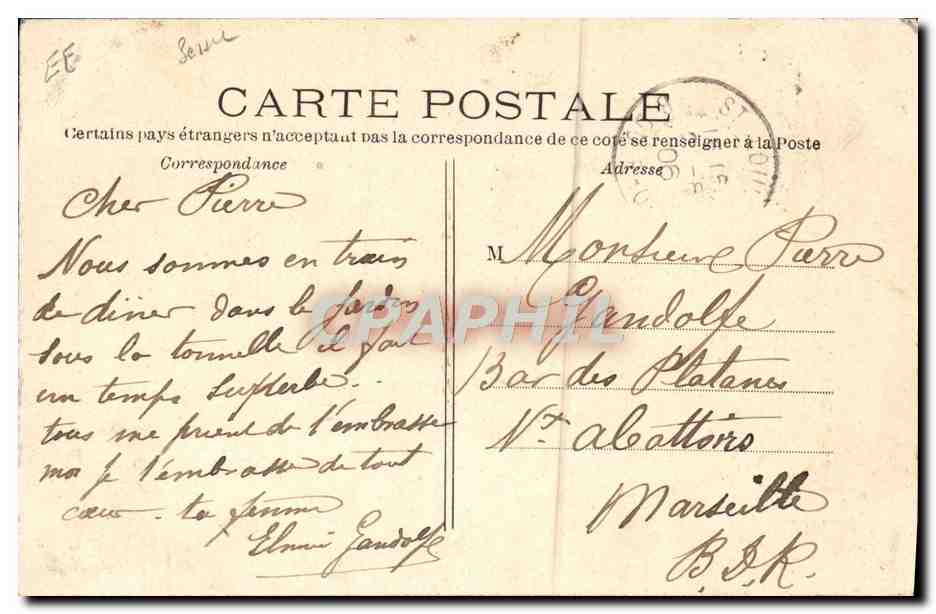 EE
CARTE POSTALE
Certains pays étrangers n'acceptant pas la correspondance de ce coté se renseigner à la Poste
Correspondance
Adresse
Cher Pierre
Nous sommes en train
de diner dans le jardin
sous la tonnelle il fait
un temps superbe.
tous me prient de t'embrasser
moi je t'embrasse de tout
coeur. ta femme
Gandolfe
M Monsieur Pierre
Gandolfe
Bar des Platanes
Nx abattoirs
Marseille
B.D.R.
CPAPHIL